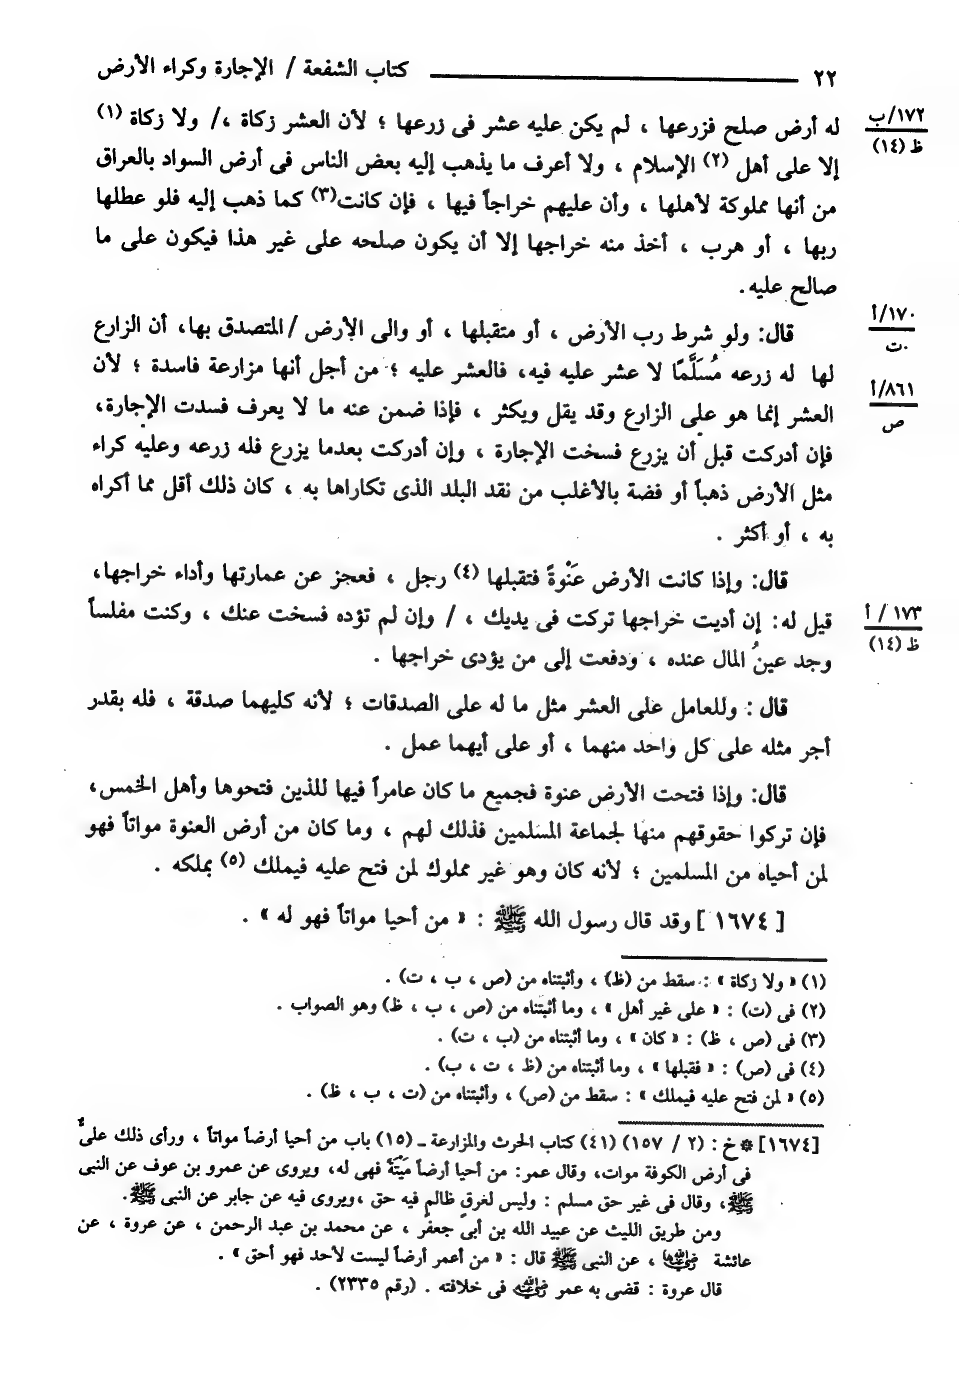 ٢٢ كتاب الشفعة / الإجارة وكراء الأرض
له أرض صلح فزرعها ، لم يكن عليه عشر فى زرعها ؛ لأن العشر زكاة ،/ ولا زكاة (١)
١٧٢/ب
ظ (١٤)
إلا على أهل (٢) الإسلام ، ولا أعرف ما يذهب إليه بعض الناس فى أرض السواد بالعراق
من أنها مملوكة لأهلها ، وأن عليهم خراجاً فيها ، فإن كانت(٣) كما ذهب إليه فلو عطلها
ربها ، أو هرب ، أخذ منه خراجها إلا أن يكون صلحه على غير هذا فيكون على ما
صالح عليه.
قال: ولو شرط رب الأرض ، أو متقبلها ، أو والى الأرض /المتصدق بها، أن الزارع
١٧٠/أ
ت
لها له زرعه مُسَلَّمًا لا عشر عليه فيه، فالعشر عليه ؛ من أجل أنها مزارعة فاسدة ؛ لأن
٨٦١/أ
ص
العشر إنما هو على الزارع وقد يقل ويكثر ، فإذا ضمن عنه ما لا يعرف فسدت الإجارة،
فإن أدركت قبل أن يزرع فسخت الإجارة ، وإن أدركت بعدما يزرع فله زرعه وعليه كراء
مثل الأرض ذهباً أو فضة بالأغلب من نقد البلد الذى تكاراها به ، كان ذلك أقل مما أكراه
به ، أو أكثر .
قال: وإذا كانت الأرض عَنْوةً فتقبلها (٤) رجل ، فعجز عن عمارتها وأداء خراجها،
قيل له: إن أديت خراجها تركت فى يديك ، / وإن لم تؤده فسخت عنك ، وكنت مفلساً
١٧٣ / أ
ظ (١٤)
وجد عينُ المال عنده ، ودفعت إلى من يؤدى خراجها .
قال : وللعامل على العشر مثل ما له على الصدقات ؛ لأنه كليهما صدقة ، فله بقدر
أجر مثله على كل واحد منهما ، أو على أيهما عمل .
قال: وإذا فتحت الأرض عنوة فجميع ما كان عامراً فيها للذين فتحوها وأهل الخمس،
فإن تركوا حقوقهم منها لجماعة المسلمين فذلك لهم ، وما كان من أرض العنوة مواتاً فهو
لمن أحياه من المسلمين ؛ لأنه كان وهو غير مملوك لمن فتح عليه فيملك (٥) بملكه .
[ ١٦٧٤ ] وقد قال رسول الله ﷺ : « من أحيا مواتاً فهو له » .
(١) « ولا زكاة » : سقط من (ظ) ، وأثبتناه من (ص ، ب ، ت) .
(٢) فى (ت) : « على غير أهل » ، وما أثبتناه من (ص ، ب ، ظ) وهو الصواب .
(٣) فى (ص ، ظ) : « كان » ، وما أثبتناه من (ب ، ت) .
(٤) فى (ص) : « فقبلها » ، وما أثبتناه من (ظ ، ت ، ب) .
(٥) « لمن فتح عليه فيملك » : سقط من (ص) ، وأثبتناه من (ت ، ب ، ظ) .
[١٦٧٤] * خ : (٢ / ١٥٧) (٤١) كتاب الحرث والمزارعة ـ (١٥) باب من أحيا أرضاً مواتاً ، ورأى ذلك علىٌّ
فى أرض الكوفة موات، وقال عمر: من أحيا أرضاً مَيْتَةً فهى له، ويروى عن عمرو بن عوف عن النبى
ﷺ، وقال فى غير حق مسلم : وليس لعرقٍ ظالمٍ فيه حق ،ويروى فيه عن جابر عن النبى ﷺ.
ومن طريق الليث عن عبيد الله بن أبى جعفر ، عن محمد بن عبد الرحمن ، عن عروة ، عن
عائشة رضي الله عنها ، عن النبى ﷺ قال : « من أعمر أرضاً ليست لأحد فهو أحق » .
قال عروة : قضى به عمر رضي الله عنه فى خلافته . (رقم ٢٣٣٥) .